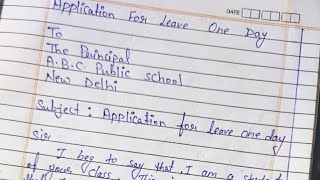 Application For Leave One Day
DATE
To
The Principal
A.B.C. Public school
New Delhi
Subject : Application for leave one day
Sir
I beg to say that I am a student
of your class